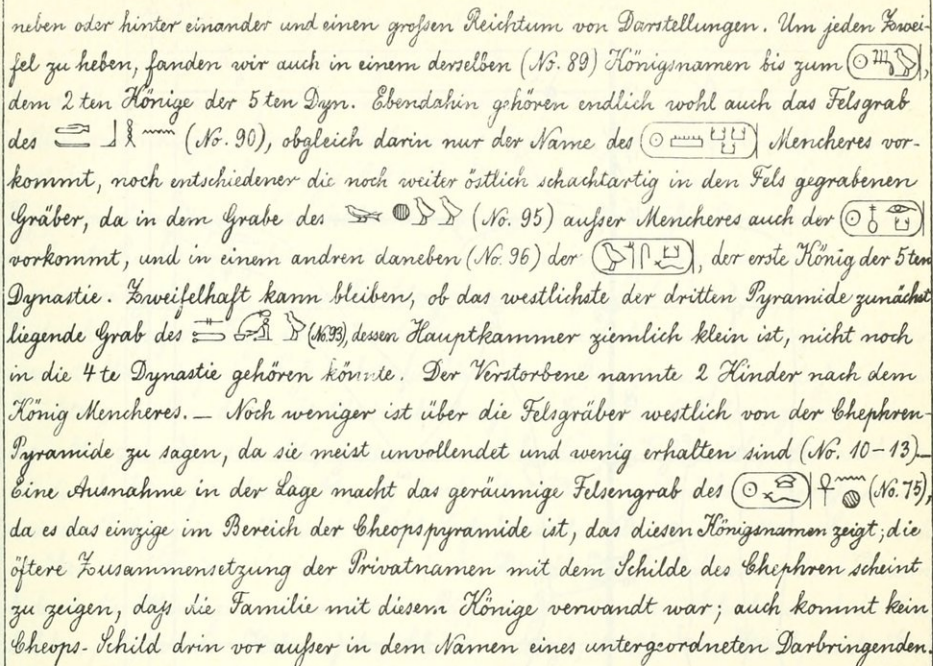 neben oder hinter einander und einen großen Reichtum von Darstellungen. Um jeden Zwei-
fel zu heben, fanden wir auch in einem derselben (No. 89) Königsnamen bis zum
dem 2ten Könige der 5ten Dyn. Ebendahin gehören endlich wohl auch das Felsgrab
des (No. 90), obgleich darin nur der Name des Mencheres vor-
kommt, noch entschiedener die noch weiter östlich schachtartig in den Fels gegrabenen
Gräber, da in dem Grabe des (No. 95) außer Mencheres auch der
vorkommt, und in einem andren daneben (No. 96) der , der erste König der 5ten
Dynastie. Zweifelhaft kann bleiben, ob das westlichste der dritten Pyramide zunächst
liegende Grab des (No. 93), dessen Hauptkammer ziemlich klein ist, nicht noch
in die 4te Dynastie gehören könnte. Der Verstorbene nannte 2 Kinder nach dem
König Mencheres. — Noch weniger ist über die Felsgräber westlich von der Chephren-
Pyramide zu sagen, da sie meist unvollendet und wenig erhalten sind (No. 10-13).—
Eine Ausnahme in der Lage macht das geräumige Felsengrab des (No. 75),
da es das einzige im Bereich der Cheopspyramide ist, das diesen Königsnamen zeigt; die
öftere Zusammensetzung der Privatnamen mit dem Schilde des Chephren scheint
zu zeigen, daß die Familie mit diesem Könige verwandt war; auch kommt kein
Cheops-Schild drin vor außer in dem Namen eines untergeordneten Darbringenden.